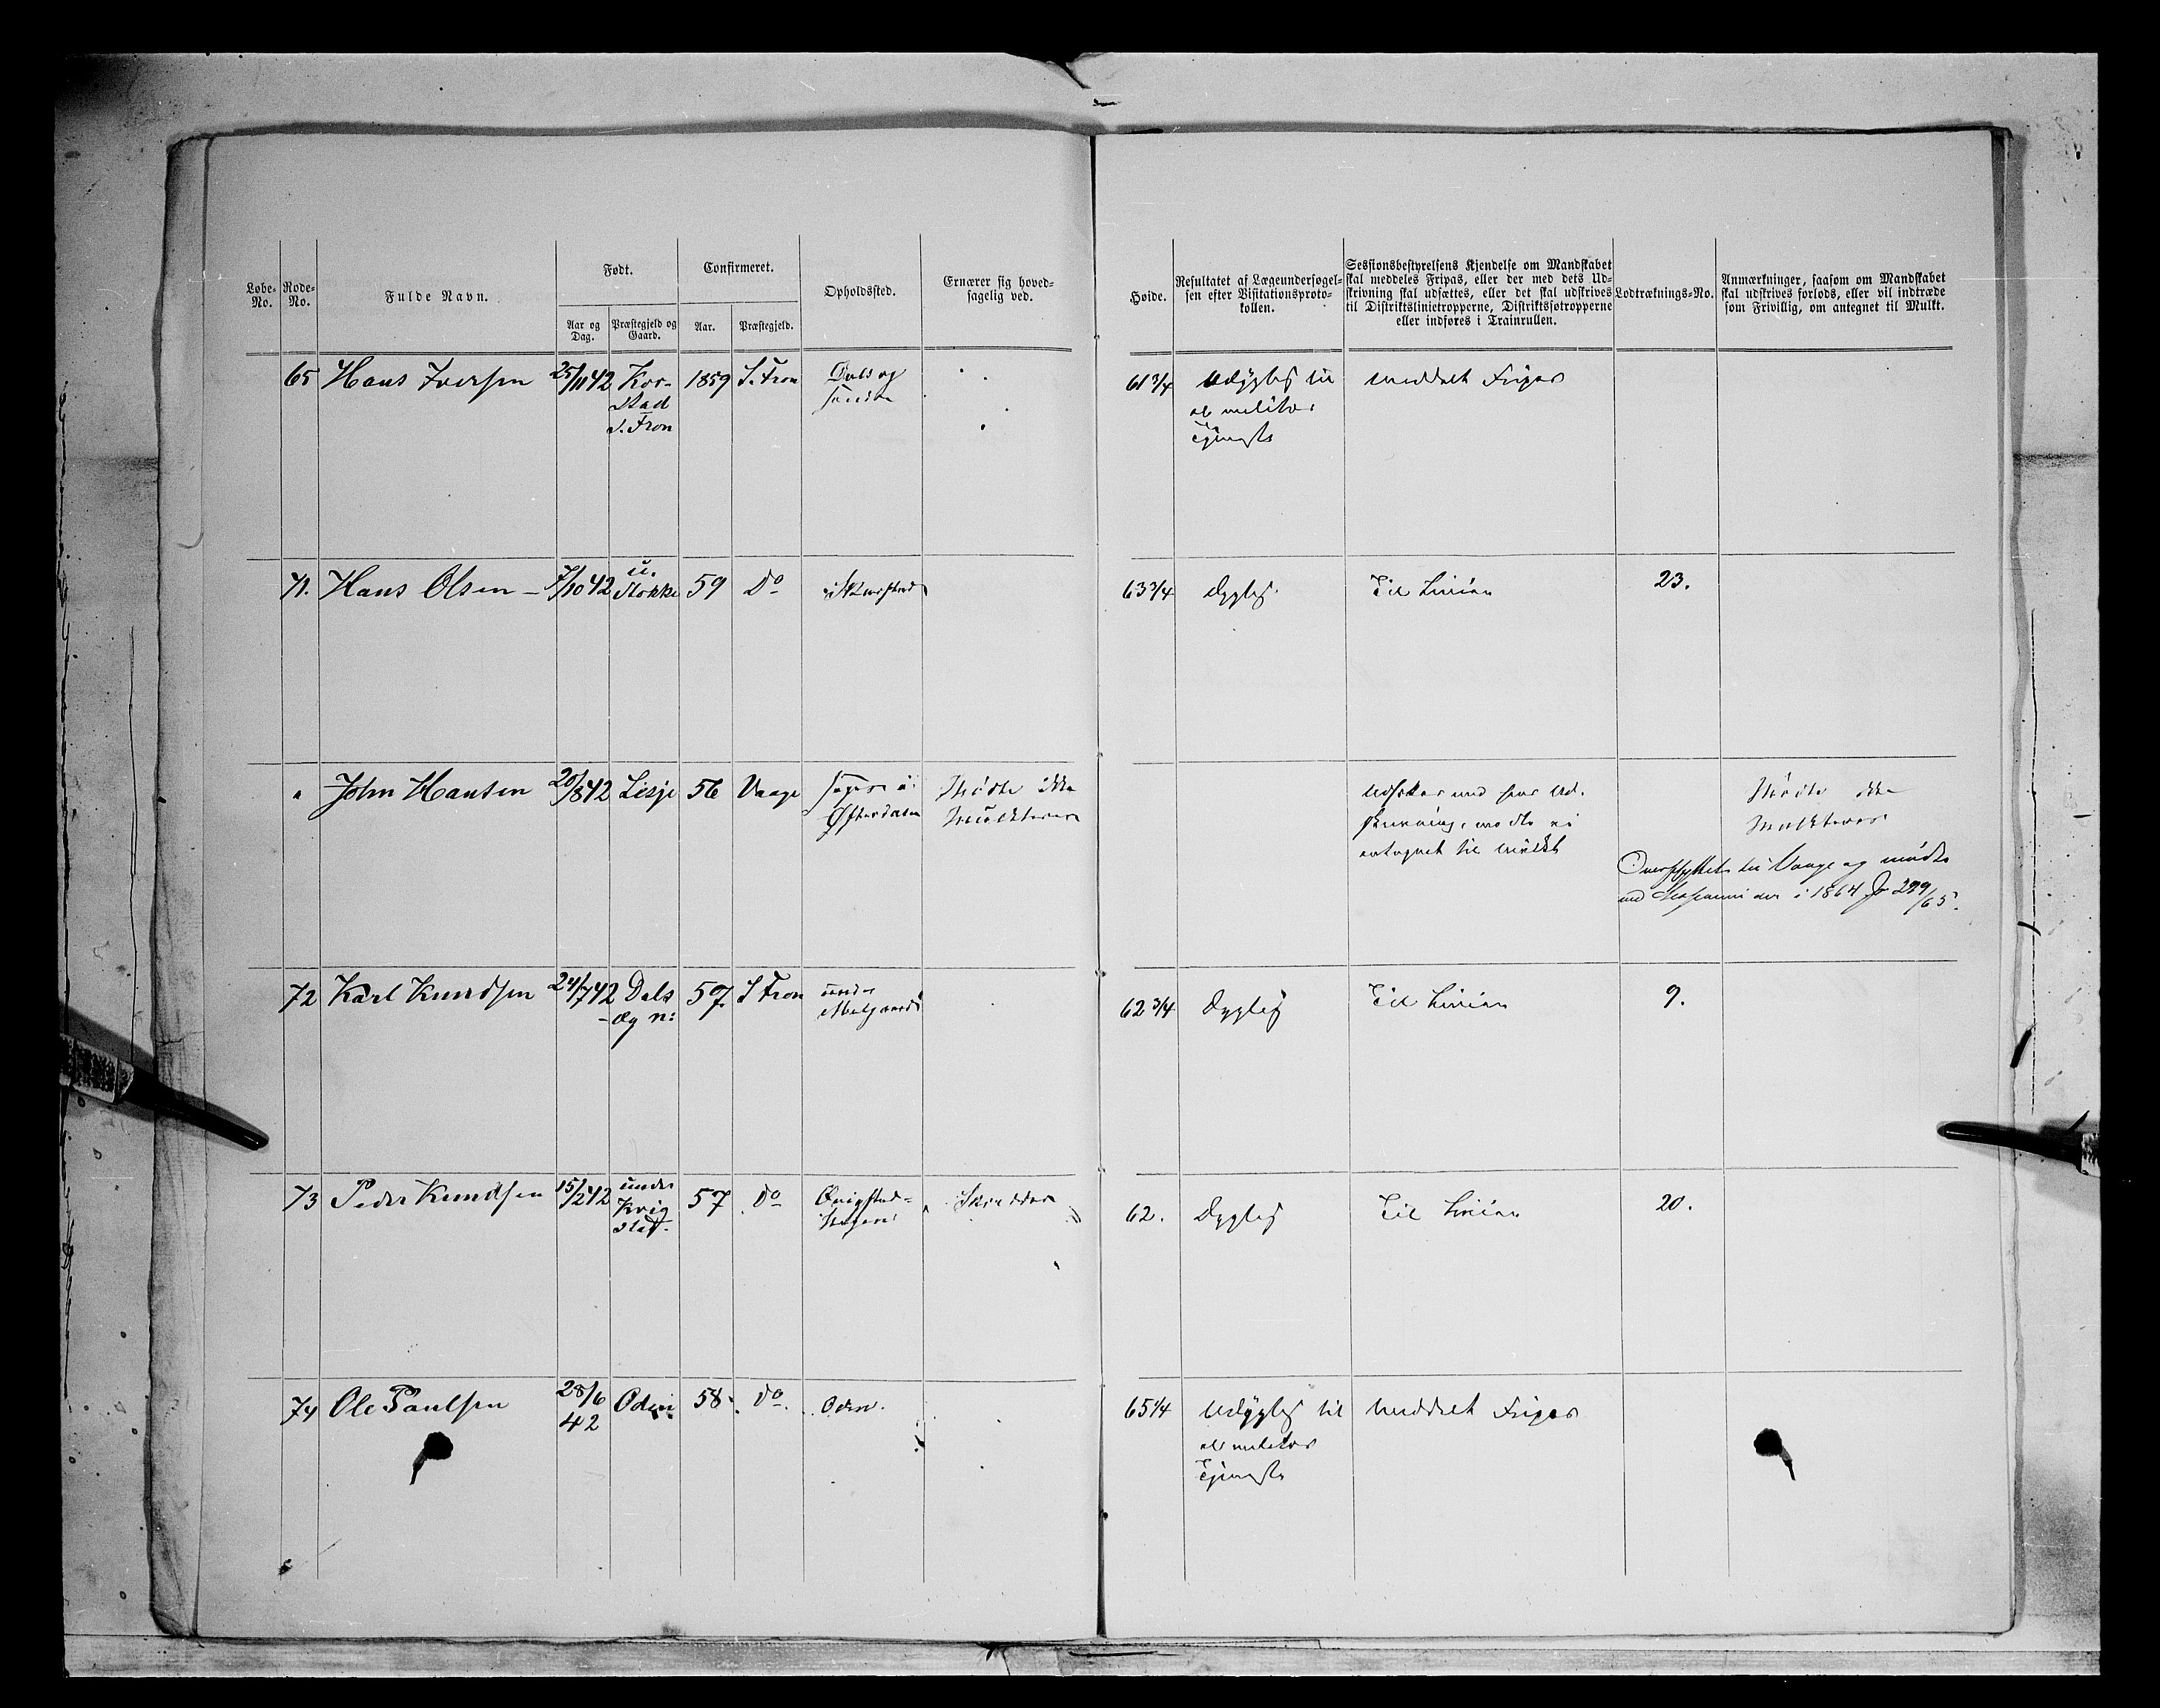 Løbe-No.
Rode-No.
Fulde Navn.
Født.
Aar og Dag.
Præstegjeld og Gaard.
Confirmeret.
Aar.
Præstegjeld.
Opholdssted.
Ernærer sig hoved-
sagelig ved.
Høide.
Resultatet af Lægeundersøgel-
sen efter Visitationsproto-
kollen.
Sessionsbestyrelsens Kjendelse om Mandskabet
skal meddeles Fripas, eller der med dets Ud-
skrivning skal udsættes, eller det skal udskrives
til Distriktslinietropperne, Distriktsfotropperne
eller indføres i Trainrullen.
Lodtræknings-No.
Anmærkninger, saasom om Mandskabet
skal udskrives forlods, eller vil indtræde
som Frivillig, om antegnet til Mulkt.
65 Hans Iversen 25/11 42 Kor- 1859 S. Fron
stad
S. Fron
61 3/4 Udygtig til meddelt Fripas
al militær
Tjeneste
71. Hans Olsen - 7/10 42 u. 59 Do
Stokke
63 3/4 Dygtig. Til Linien 23.
" John Hansen 20/8 42 Lesje 56 Vaage
Østerdalen
Mødte ikke
Mulkteres
Udsættes med hans Ud-
skrivning, mødte ei
antegnet til Mulkt
Mødte ikke
Mulkteres
Overflyttet til Vaage og mødte
ved Sessionen der i 1864 Jr 299/65.
72 Karl Knudsen 24/7 42 Dals 57 S Fron under
- æg n:
62 3/4 Dygtig Til Linien 9.
73 Peder Knudsen 15/2 42 under 57 Do Qvigstad- Skrædder
Kvig
stad.
Hagen
62. Dygtig Til Linien 20.
74 Ole Paulsen 28/6 42 Odin 58 Do. Oden.
65 1/4 Udygtig til meddelt Fripas
al militær
Tjeneste